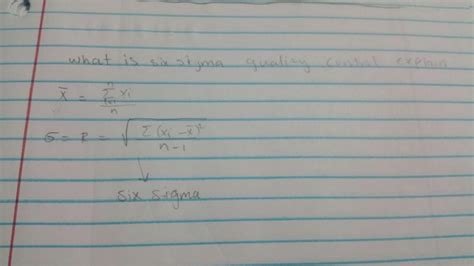 what is six sigma quality control explain
x̄ = Σⁿᵢ₌₁ xᵢ / n
σ = R = √( Σ (xᵢ - x̄)² / n-1 )
six sigma